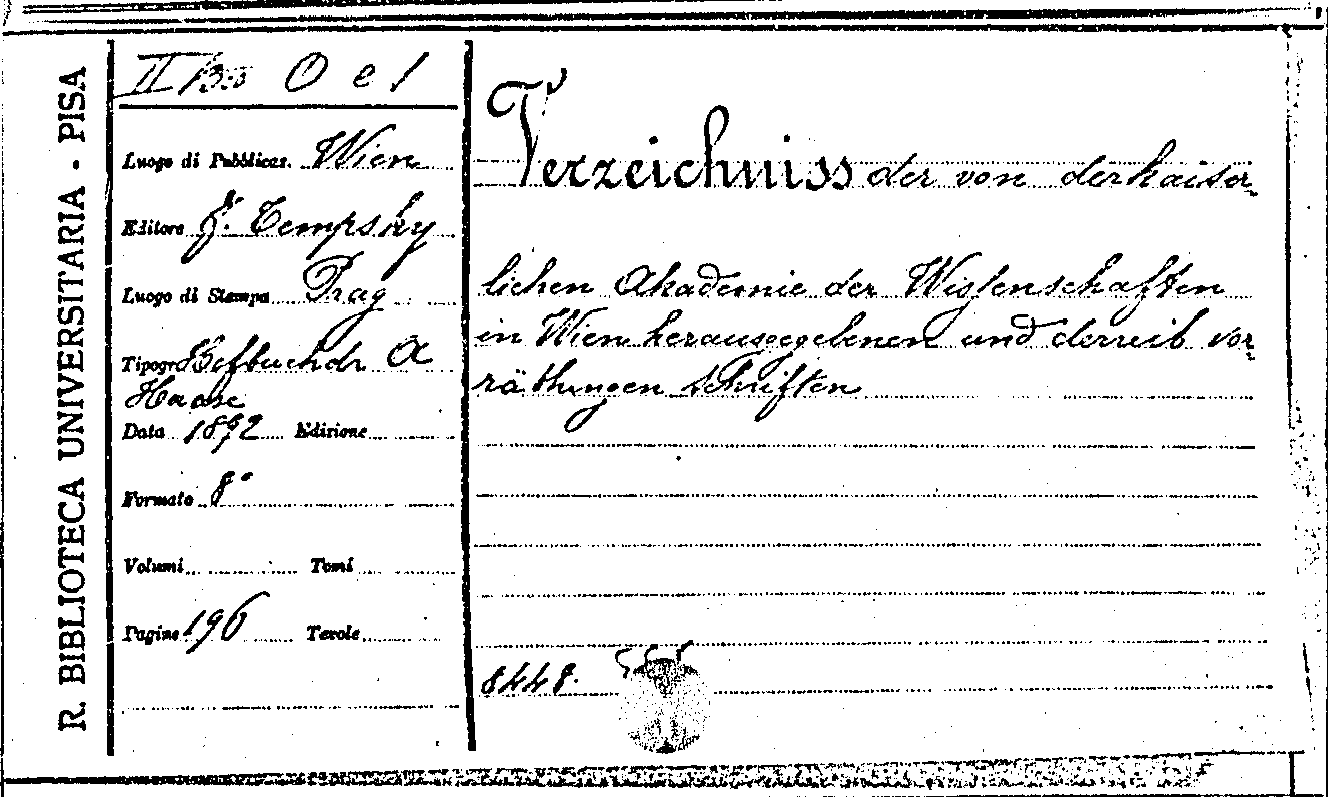 R. BIBLIOTECA UNIVERSITARIA - PISA
II O e 1
Luogo di Pubblicaz. Wien
Editore F. Tempsky
Luogo di Stampa Prag
Tipogr. Hofbuchdr A
Haase
Data 1892 Edizione
Formato 8°
Volumi Tomi
Pagine 196 Tavole
Verzeichniss der von der kaiser-
lichen Akademie der Wissenschaften
in Wien herausgegebenen und derzeit vor-
räthingen Schriften
8448.